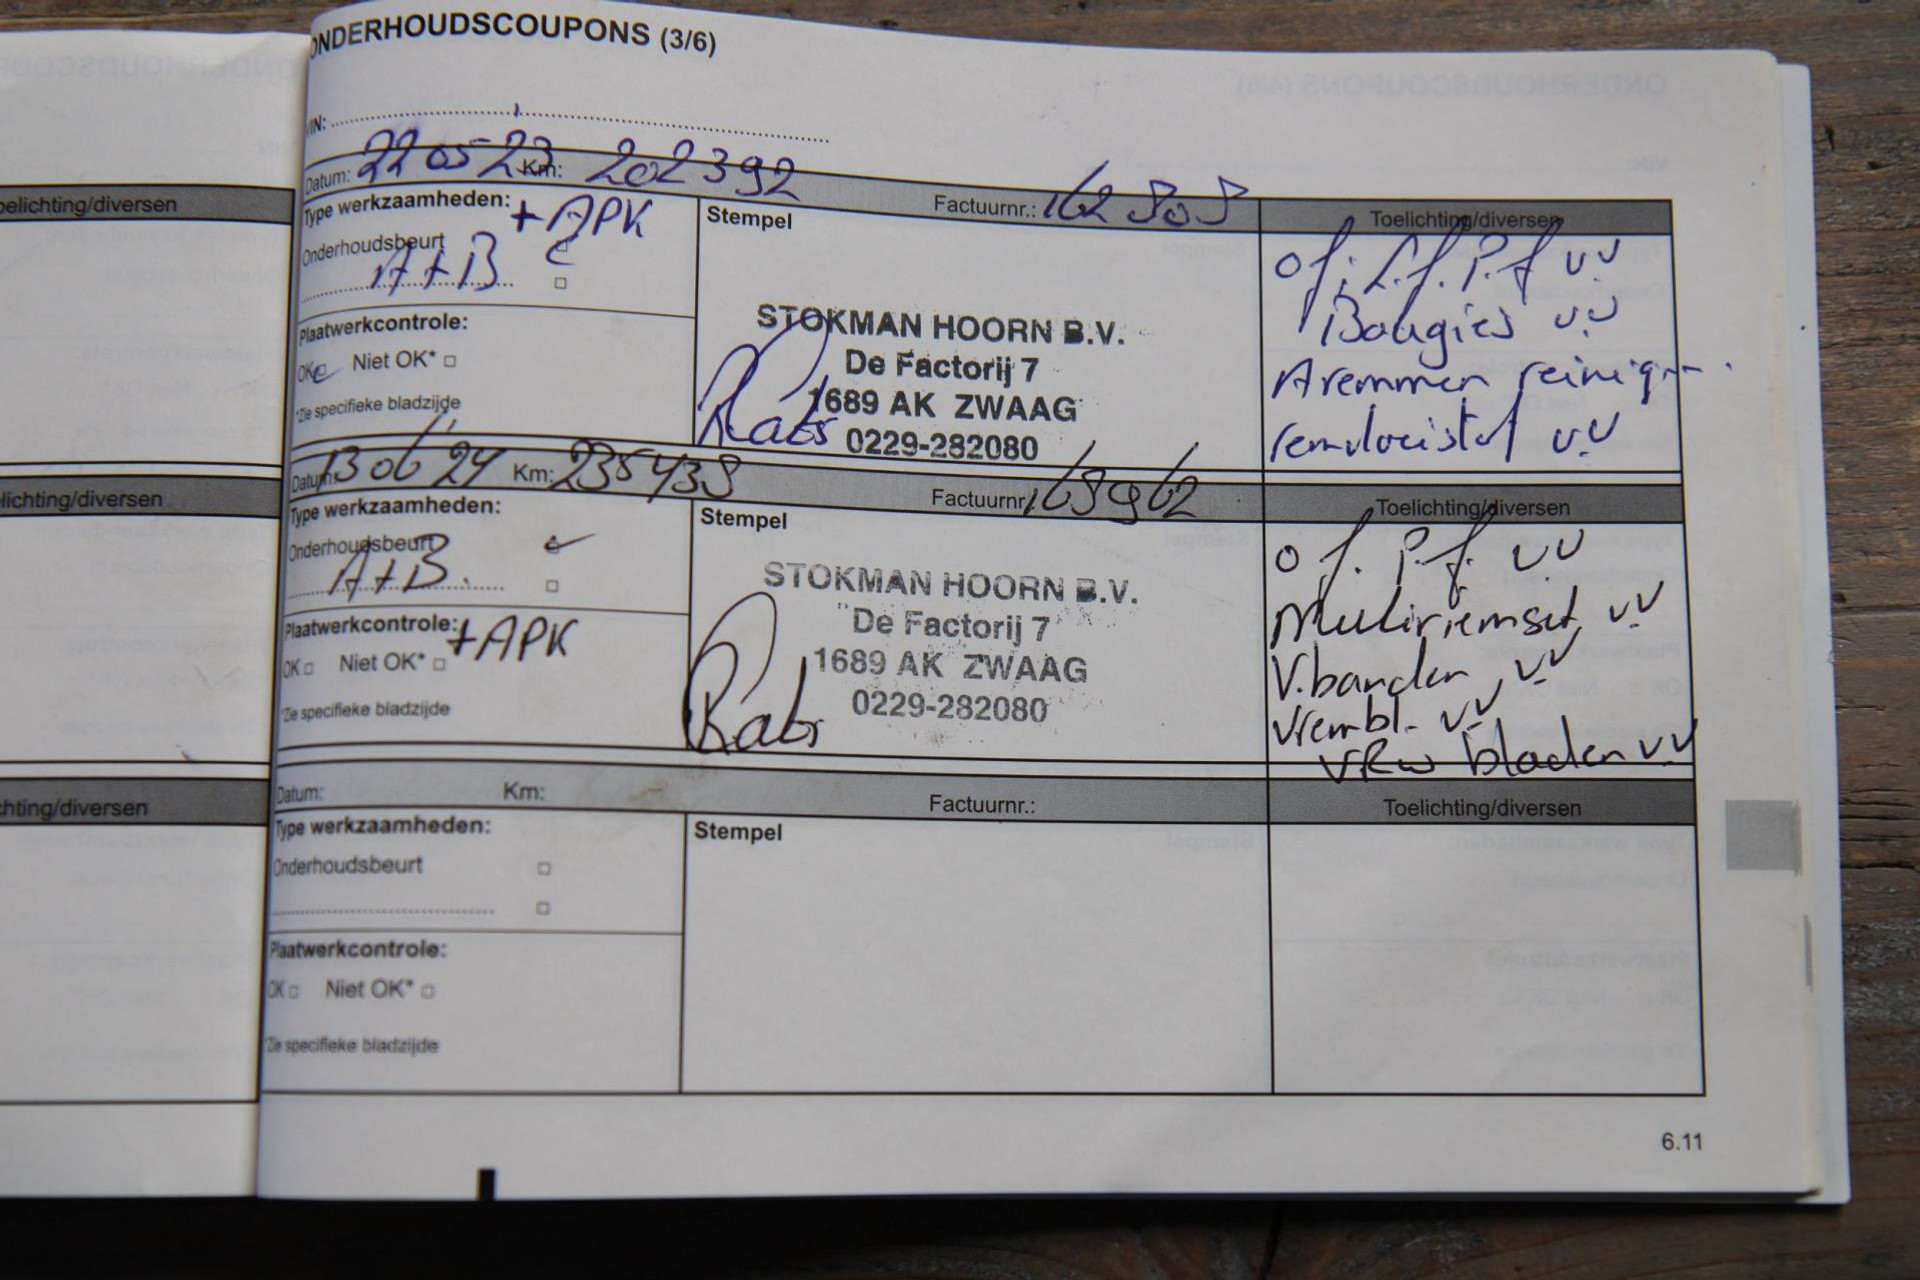 ONDERHOUDSCOUPONS (3/6)
VIN:
Datum: 22 05 23 Km: 202392 Factuurnr.: Toelichting/diversen
Type werkzaamheden: + APK
Onderhoudsbeurt
A+B
Plaatwerkcontrole:
OK Niet OK*
*Zie specifieke bladzijde
Stempel
STOKMAN HOORN B.V.
De Factorij 7
1689 AK ZWAAG
0229-282080
of. l.f. p.f vv
Bougies vv
Aremmen reinig
remvloeistof vv
Datum: 13 06 24 Km: 235438 Factuurnr. Toelichting/diversen
Type werkzaamheden:
Onderhoudsbeurt
A+B.
Plaatwerkcontrole: +APK
OK Niet OK*
*Zie specifieke bladzijde
Stempel
STOKMAN HOORN B.V.
De Factorij 7
1689 AK ZWAAG
0229-282080
of. p.f. vv
Multiriemset vv
V.banden vv
Vrembl. vv
VRW bladen vv
Datum: Km: Factuurnr.: Toelichting/diversen
Type werkzaamheden:
Onderhoudsbeurt
Plaatwerkcontrole:
OK Niet OK*
*Zie specifieke bladzijde
Stempel
6.11
elichting/diversen
lichting/diversen
hting/diversen